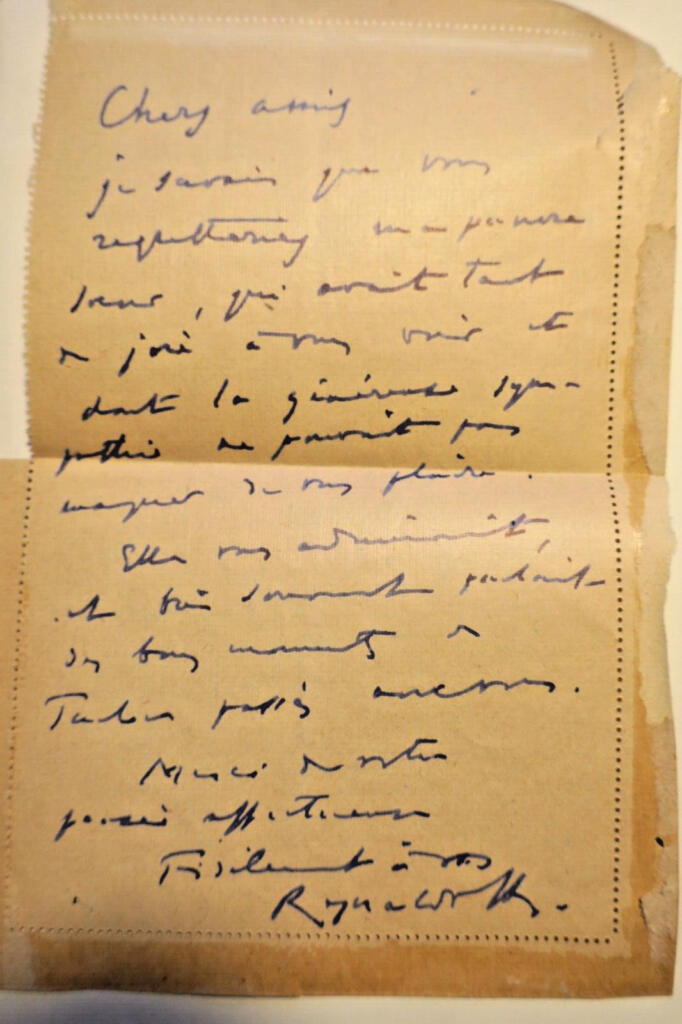 Chers amis
je savais que vous
regretteriez ma pauvre
soeur, qui avait tant
de joie à vous voir et
dont la généreuse sym-
pathie ne pouvait pas
manquer de vous plaire.
Elle vous admirait,
et bien souvent parlait
des bons moments de
Toulon passés avec vous.
Merci de votre
pensée affectueuse
Fidèlement à vous
Reynaldo Hahn.